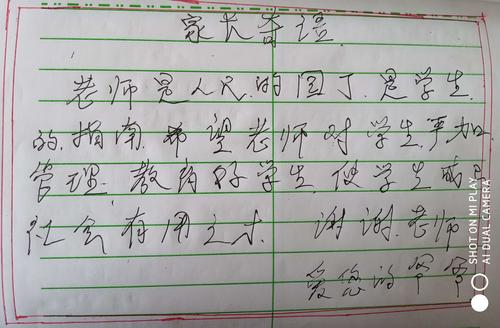 家长寄语
老师是人民的园丁.是学生.
的.指南.希望老师对学生严加
管理.教育好学生.使学生成为
社会有用之才. 谢谢.老师
爱您的爷爷
SHOT ON MI PLAY
AI DUAL CAMERA